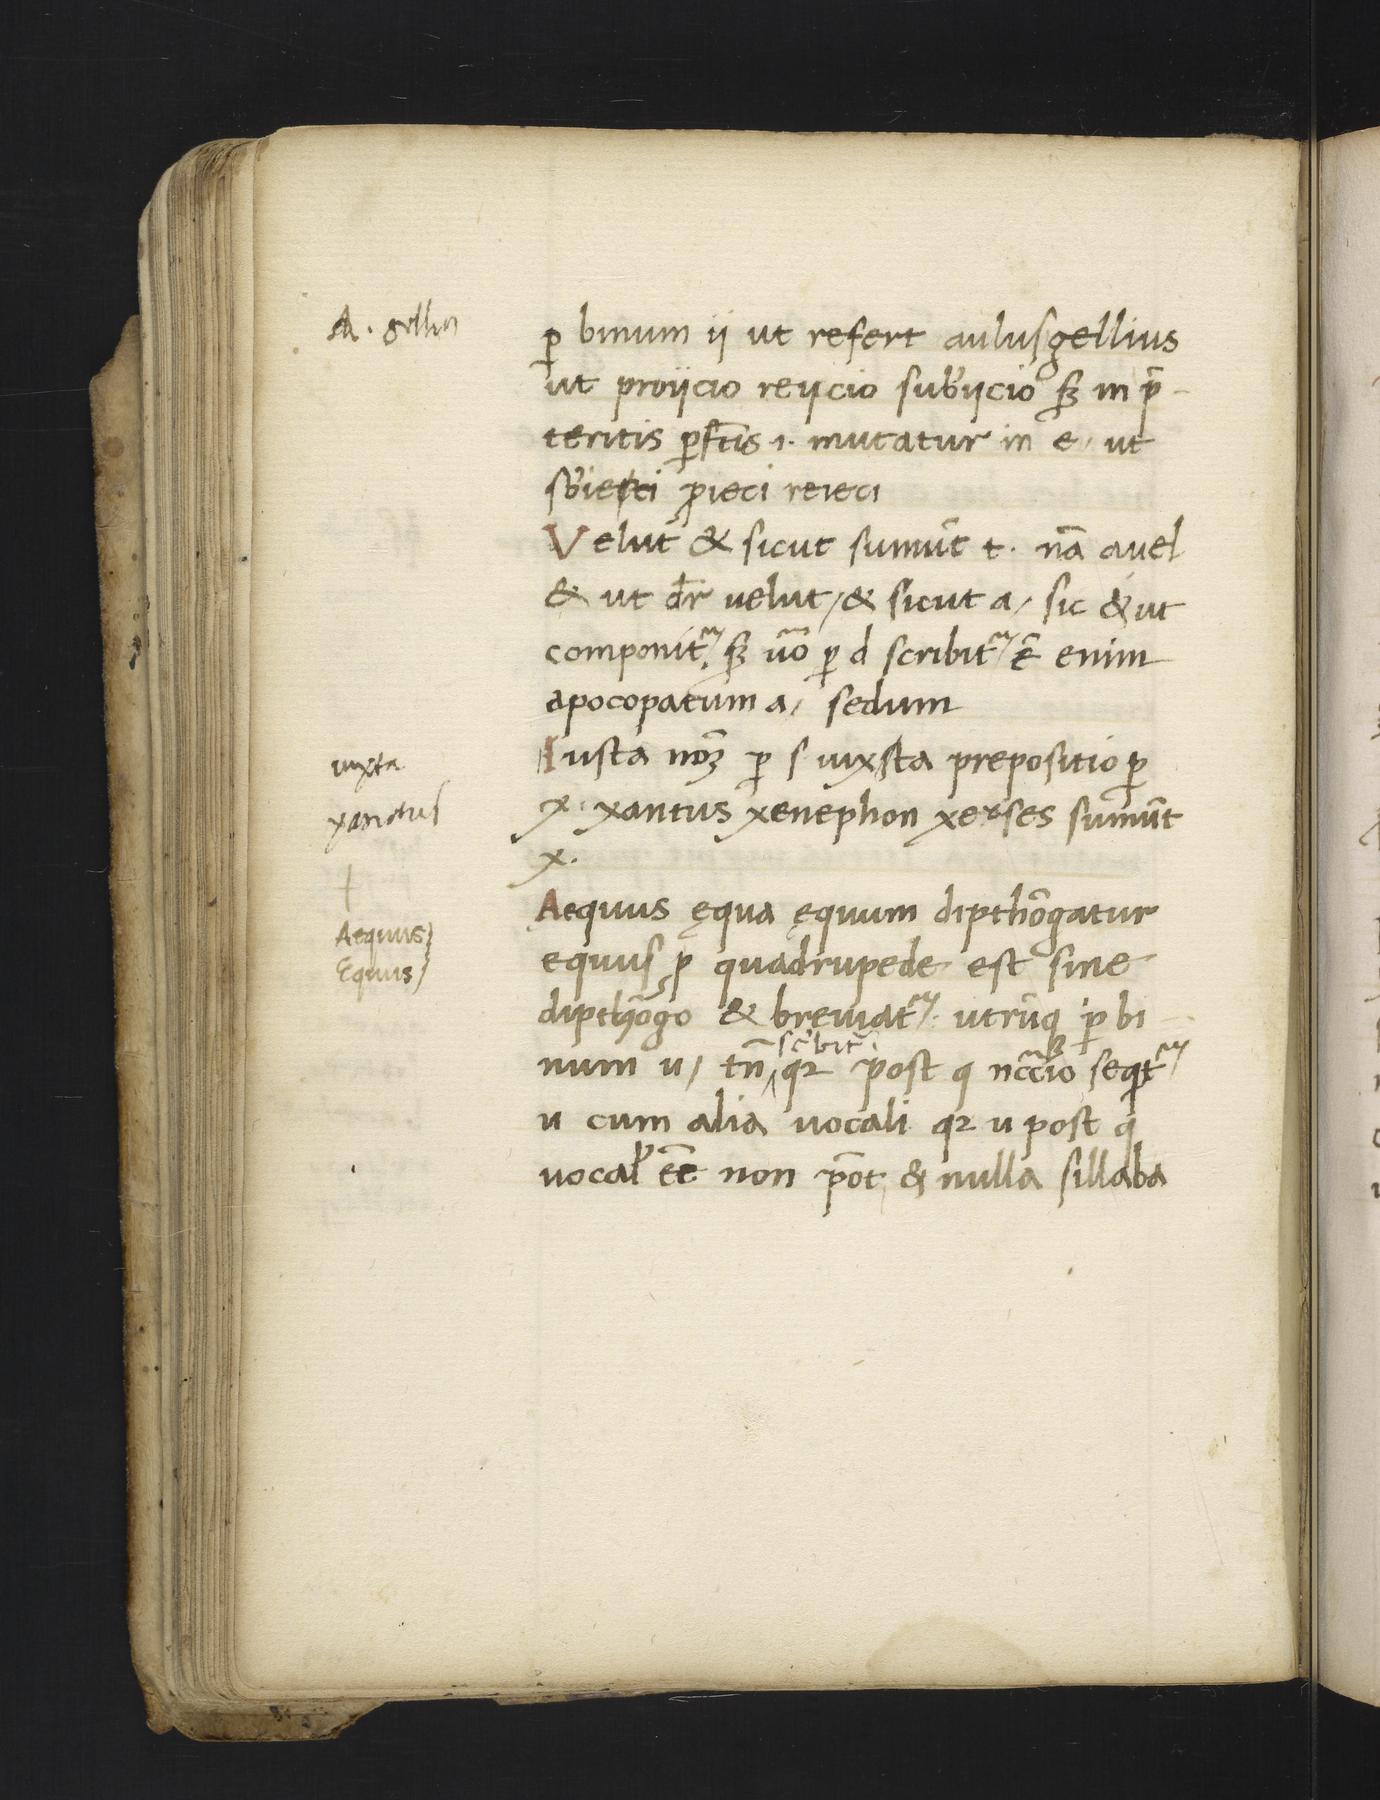 A. gellius
ꝑ binum ii ut refert aulusgellius
ut proiicio reiicio subiicio sꝫ in p̄
teritis ꝑfc̄tis i. mutatur in e, ut
sb̄ieci ꝓieci reieci
Velut & sicut sumūt t. nā a uel
& ut dr̄ uelut, & sicut a, sic & ut
componit͛, sꝫ uō ꝑ d scribit͛, ē enim
apocopatum a, sedum
iuxta
Iusta nomꝫ ꝑ s iuxsta prepositio ꝑ
xanctus
x. xantus xenephon xerses sumūt
x.
Aequus
Aequus ęqua ęquum dipthōgatur
Equus
equus ꝓ quadrupede est sine
dipthōgo & breuiat͛. utrūq ꝑ bi
scͥbit͛
num u, tn̄ qꝛ post q ncc̄io seqͥt͛
u cum alia uocali qꝛ u post q
uocal eē non pōt & nulla sillaba